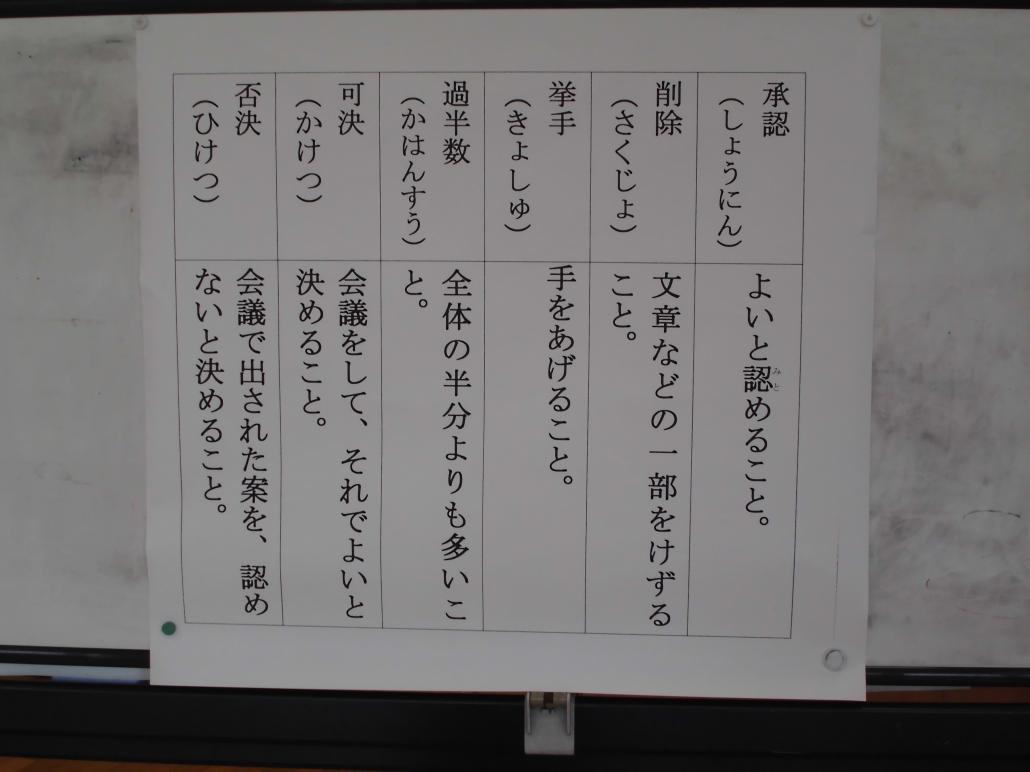 承認
（しょうにん）
よいと認めることと。
削除
（さくじょ）
文章などの一部をけずる
こと。
挙手
（きょしゅ）
手をあげること。
過半数
（かはんすう）
全体の半分よりも多いこ
と。
可決
（かけつ）
会議をして、それでよいと
決めること。
否決
（ひけつ）
会議で出された案を、認め
ないと決めること。